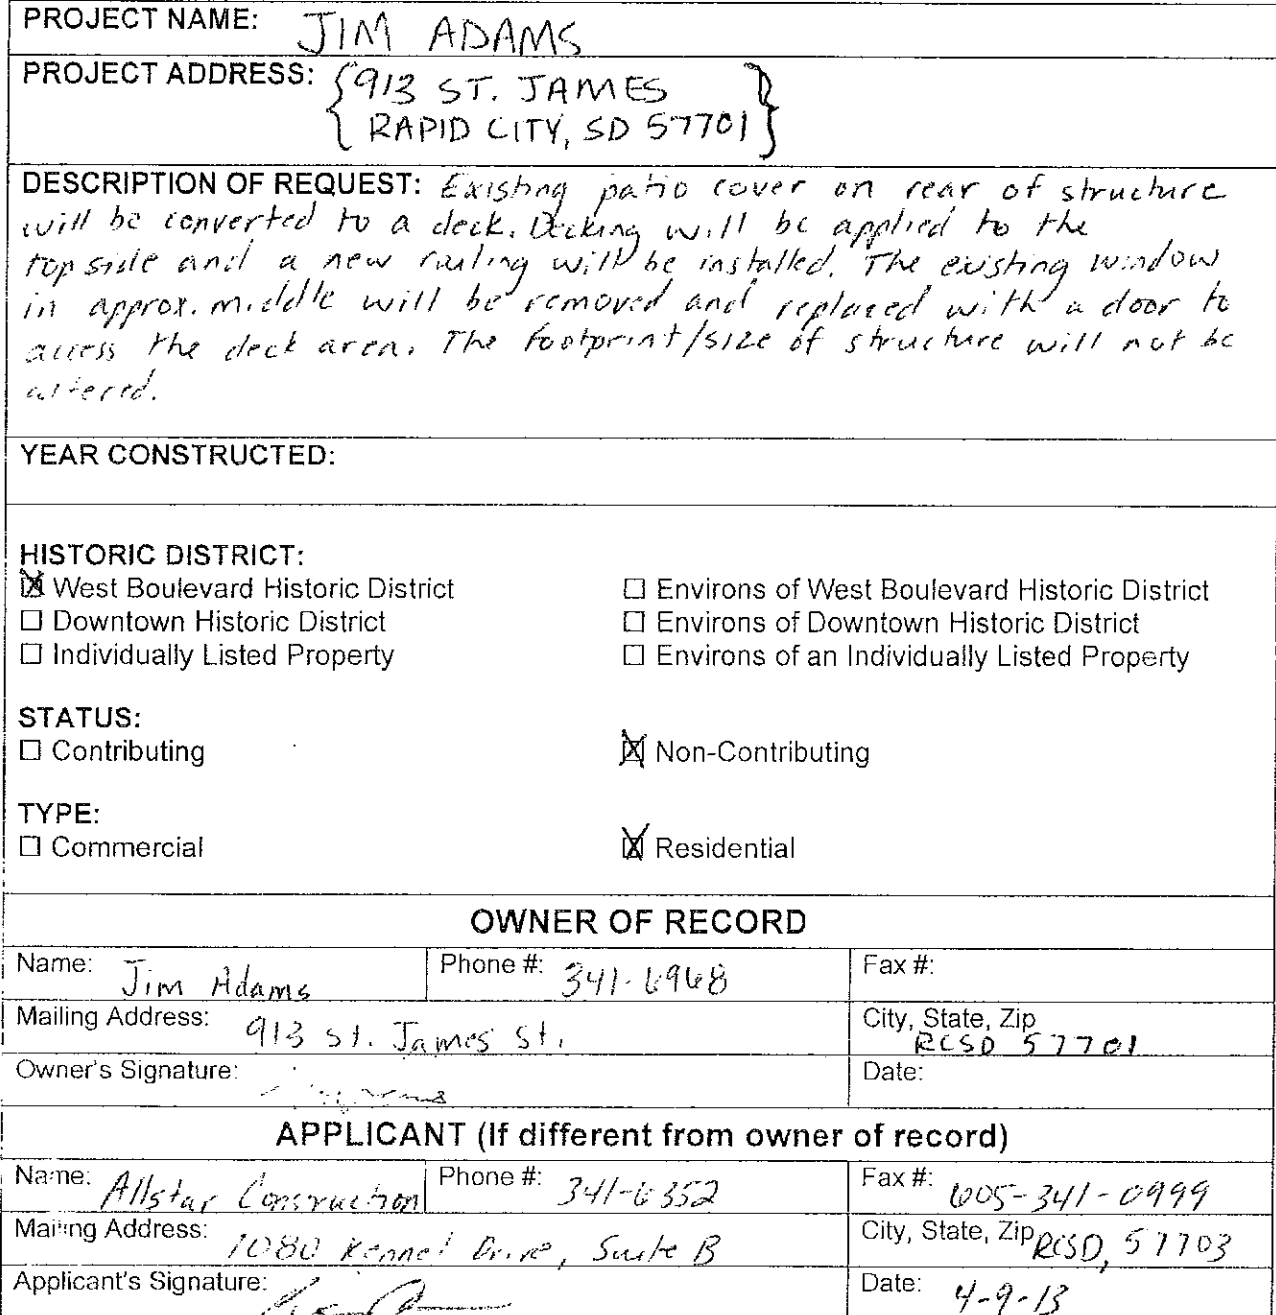 PROJECT NAME: JIM ADAMS
PROJECT ADDRESS: {913 ST. JAMES
RAPID CITY, SD 57701}
DESCRIPTION OF REQUEST: Existing patio cover on rear of structure
will be converted to a deck. Decking will be applied to the
topside and a new railing will be installed. The existing window
in approx. middle will be removed and replaced with a door to
access the deck area. The footprint/size of structure will not be
altered.
YEAR CONSTRUCTED:
HISTORIC DISTRICT:
☒ West Boulevard Historic District ☐ Environs of West Boulevard Historic District
☐ Downtown Historic District ☐ Environs of Downtown Historic District
☐ Individually Listed Property ☐ Environs of an Individually Listed Property
STATUS:
☐ Contributing ☒ Non-Contributing
TYPE:
☐ Commercial ☒ Residential
OWNER OF RECORD
Name: Jim Adams Phone #: 341-6968 Fax #:
Mailing Address: 913 St. James St. City, State, Zip RCSD 57701
Owner's Signature: Date:
APPLICANT (If different from owner of record)
Name: Allstar Consruction Phone #: 341-6352 Fax #: 605-341-0999
Mailing Address: 1080 Kennel Drive, Suite B City, State, Zip RCSD, 57703
Applicant's Signature: Date: 4-9-13